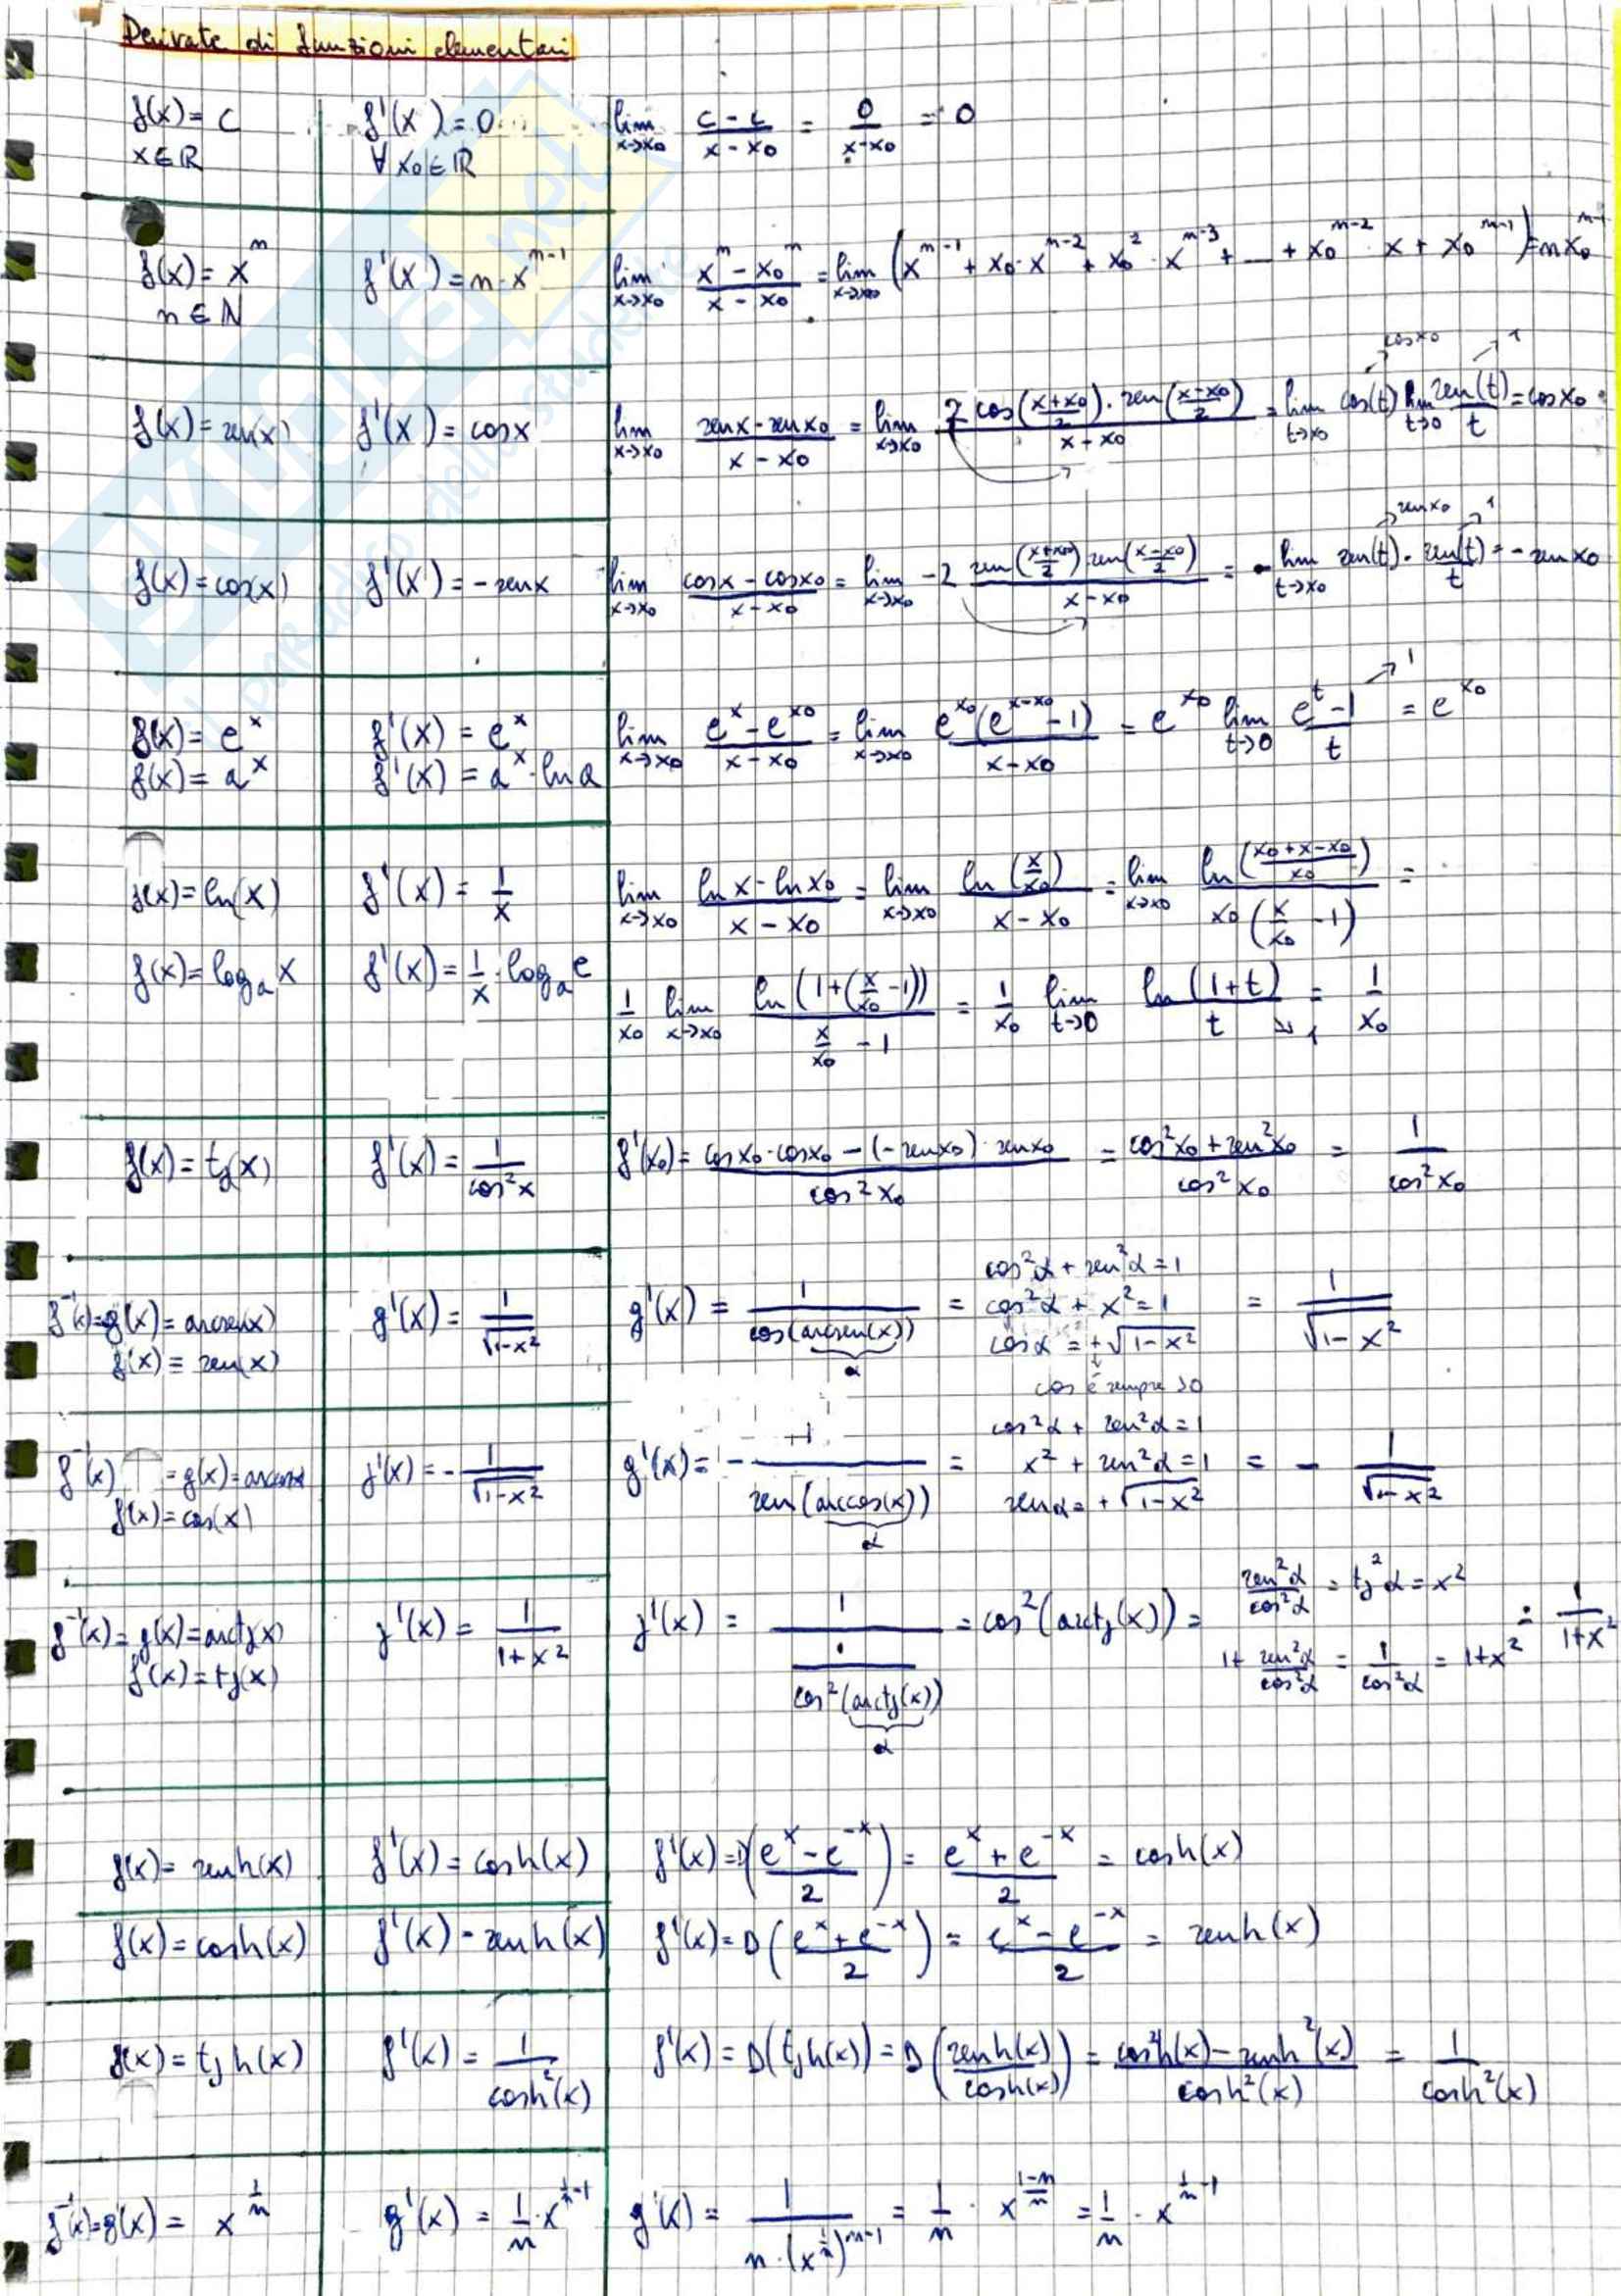 Derivate di funzioni elementari
f(x) = c    f'(x) = 0    lim x→x₀ (c - c)/(x - x₀) = 0/(x - x₀) = 0
x ∈ ℝ    ∀ x₀ ∈ ℝ
f(x) = x^n    f'(x) = n·x^(n-1)    lim x→x₀ (x^n - x₀^n)/(x - x₀) = lim x→x₀ (x^(n-1) + x₀·x^(n-2) + x₀²·x^(n-3) + ... + x₀^(n-2)·x + x₀^(n-1)) = n x₀^(n-1)
n ∈ ℕ
cos x₀    1
f(x) = sen(x)    f'(x) = cos x    lim x→x₀ (sen x - sen x₀)/(x - x₀) = lim x→x₀ 2 cos((x+x₀)/2)·sen((x-x₀)/2)/(x - x₀) = lim t→x₀ cos(t) lim t→0 sen(t)/t = cos x₀
sen x₀    1
f(x) = cos(x)    f'(x) = -sen x    lim x→x₀ (cos x - cos x₀)/(x - x₀) = lim x→x₀ -2 sen((x+x₀)/2) sen((x-x₀)/2)/(x - x₀) = - lim t→x₀ sen(t)·sen(t)/t = -sen x₀
1
f(x) = e^x    f'(x) = e^x    lim x→x₀ (e^x - e^x₀)/(x - x₀) = lim x→x₀ e^x₀(e^(x-x₀) - 1)/(x - x₀) = e^x₀ lim t→0 (e^t - 1)/t = e^x₀
f(x) = a^x    f'(x) = a^x · ln a
f(x) = ln(x)    f'(x) = 1/x    lim x→x₀ (ln x - ln x₀)/(x - x₀) = lim x→x₀ ln(x/x₀)/(x - x₀) = lim x→x₀ ln((x₀+x-x₀)/x₀)/(x₀(x/x₀ - 1)) =
f(x) = log_a x    f'(x) = 1/x · log_a e    1/x₀ lim x→x₀ ln(1+(x/x₀ - 1))/(x/x₀ - 1) = 1/x₀ lim t→0 ln(1+t)/t ↘ 1 = 1/x₀
f(x) = tg(x)    f'(x) = 1/cos²x    f'(x₀) = (cos x₀·cos x₀ - (-sen x₀)·sen x₀)/cos²x₀ = (cos²x₀ + sen²x₀)/cos²x₀ = 1/cos²x₀
cos²α + sen²α = 1
f⁻¹(x) = g(x) = arcsen(x)    g'(x) = 1/√(1-x²)    g'(x) = 1/cos(arcsen(x)) = cos²α + x² = 1 = 1/√(1-x²)
f(x) = sen(x)    α    cos α = +√(1-x²)
cos è sempre >0
cos²α + sen²α = 1
f⁻¹(x) = g(x) = arccos x    g'(x) = -1/√(1-x²)    g'(x) = -1/sen(arccos(x)) = x² + sen²α = 1 = -1/√(1-x²)
f(x) = cos(x)    α    sen α = +√(1-x²)
sen²α/cos²α = tg²α = x²
f⁻¹(x) = g(x) = arctg(x)    g'(x) = 1/(1+x²)    g'(x) = 1/(1/cos²(arctg(x))) = cos²(arctg(x)) = 1 + sen²α/cos²α = 1/cos²α = 1+x² = 1/(1+x²)
f(x) = tg(x)    α
f(x) = senh(x)    f'(x) = cosh(x)    f'(x) = D((e^x - e^-x)/2) = (e^x + e^-x)/2 = cosh(x)
f(x) = cosh(x)    f'(x) = senh(x)    f'(x) = D((e^x + e^-x)/2) = (e^x - e^-x)/2 = senh(x)
f(x) = tgh(x)    f'(x) = 1/cosh²(x)    f'(x) = D(tgh(x)) = D(senh(x)/cosh(x)) = (cosh²(x) - senh²(x))/cosh²(x) = 1/cosh²(x)
f⁻¹(x) = g(x) = x^(1/n)    g'(x) = 1/n · x^(1/n-1)    g'(x) = 1/(n·(x^(1/n))^(n-1)) = 1/n · x^((1-n)/n) = 1/n · x^(1/n-1)